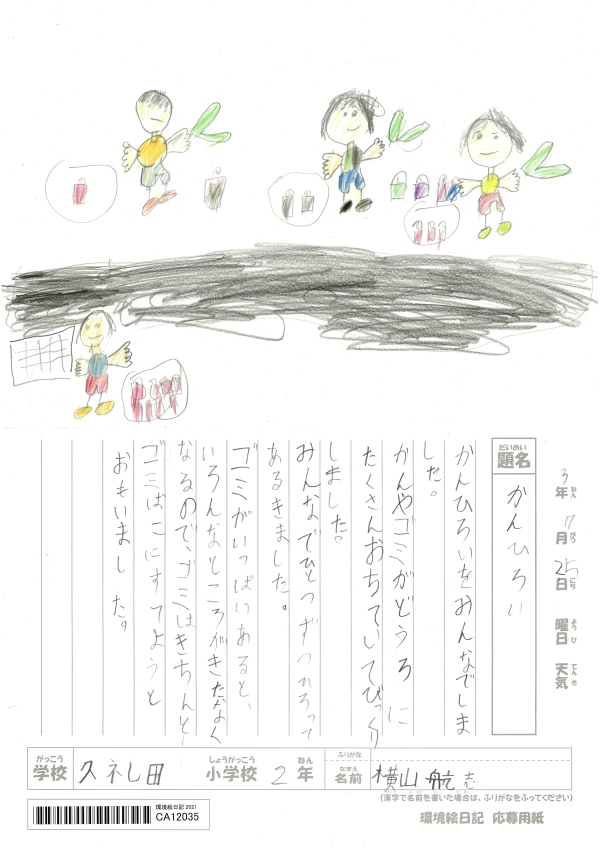 3年 7月 25日 曜日 天気
ねん がつ にち ようび てんき
だいめい
題名 かんひろい
かんひろいをみんなでしま
した。
かんやゴミがどうろに
たくさんおちていてびっくり
しました。
みんなでひとつずつひろって
あるきました。
ゴミがいっぱいあると、
いろんなところがきたなく
なるので、ゴミはきちんと
ゴミばこにすてようと
おもいました。
がっこう しょうがっこう ねん
学校 久礼田 小学校 2年
ふりがな
なまえ
名前 横山 航志
(漢字で名前を書いた場合は、ふりがなをふってください)
環境絵日記 2021
CA12035
環境絵日記 応募用紙